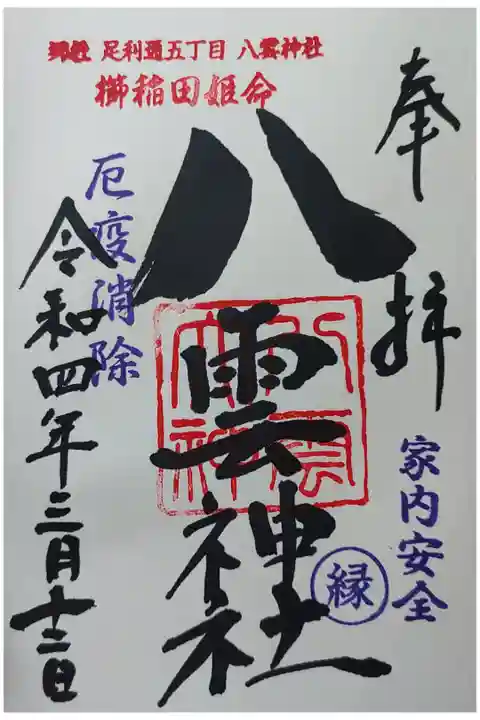 郷社 足利通五丁目 八雲神社
櫛稲田姫命
奉拝
八雲神社
家内安全
縁
厄疫消除
令和四年三月十二日